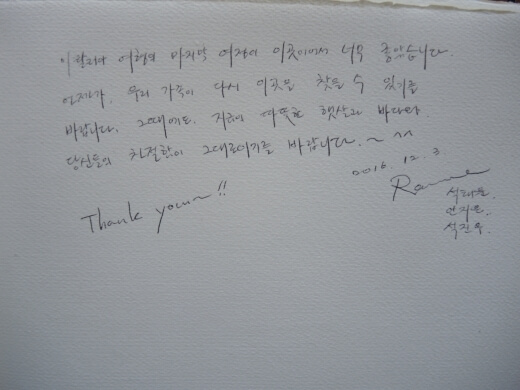 이탈리아 여행의 마지막 여정이 이곳이어서 너무 좋았습니다.
언젠가, 우리 가족이 다시 이곳을 찾을 수 있기를
바랍니다. 그때에도, 지금의 따뜻한 햇살과 바다와
당신들의 친절함이 그대로이기를 바랍니다.~ ^^
12. 3
Thank you~!!